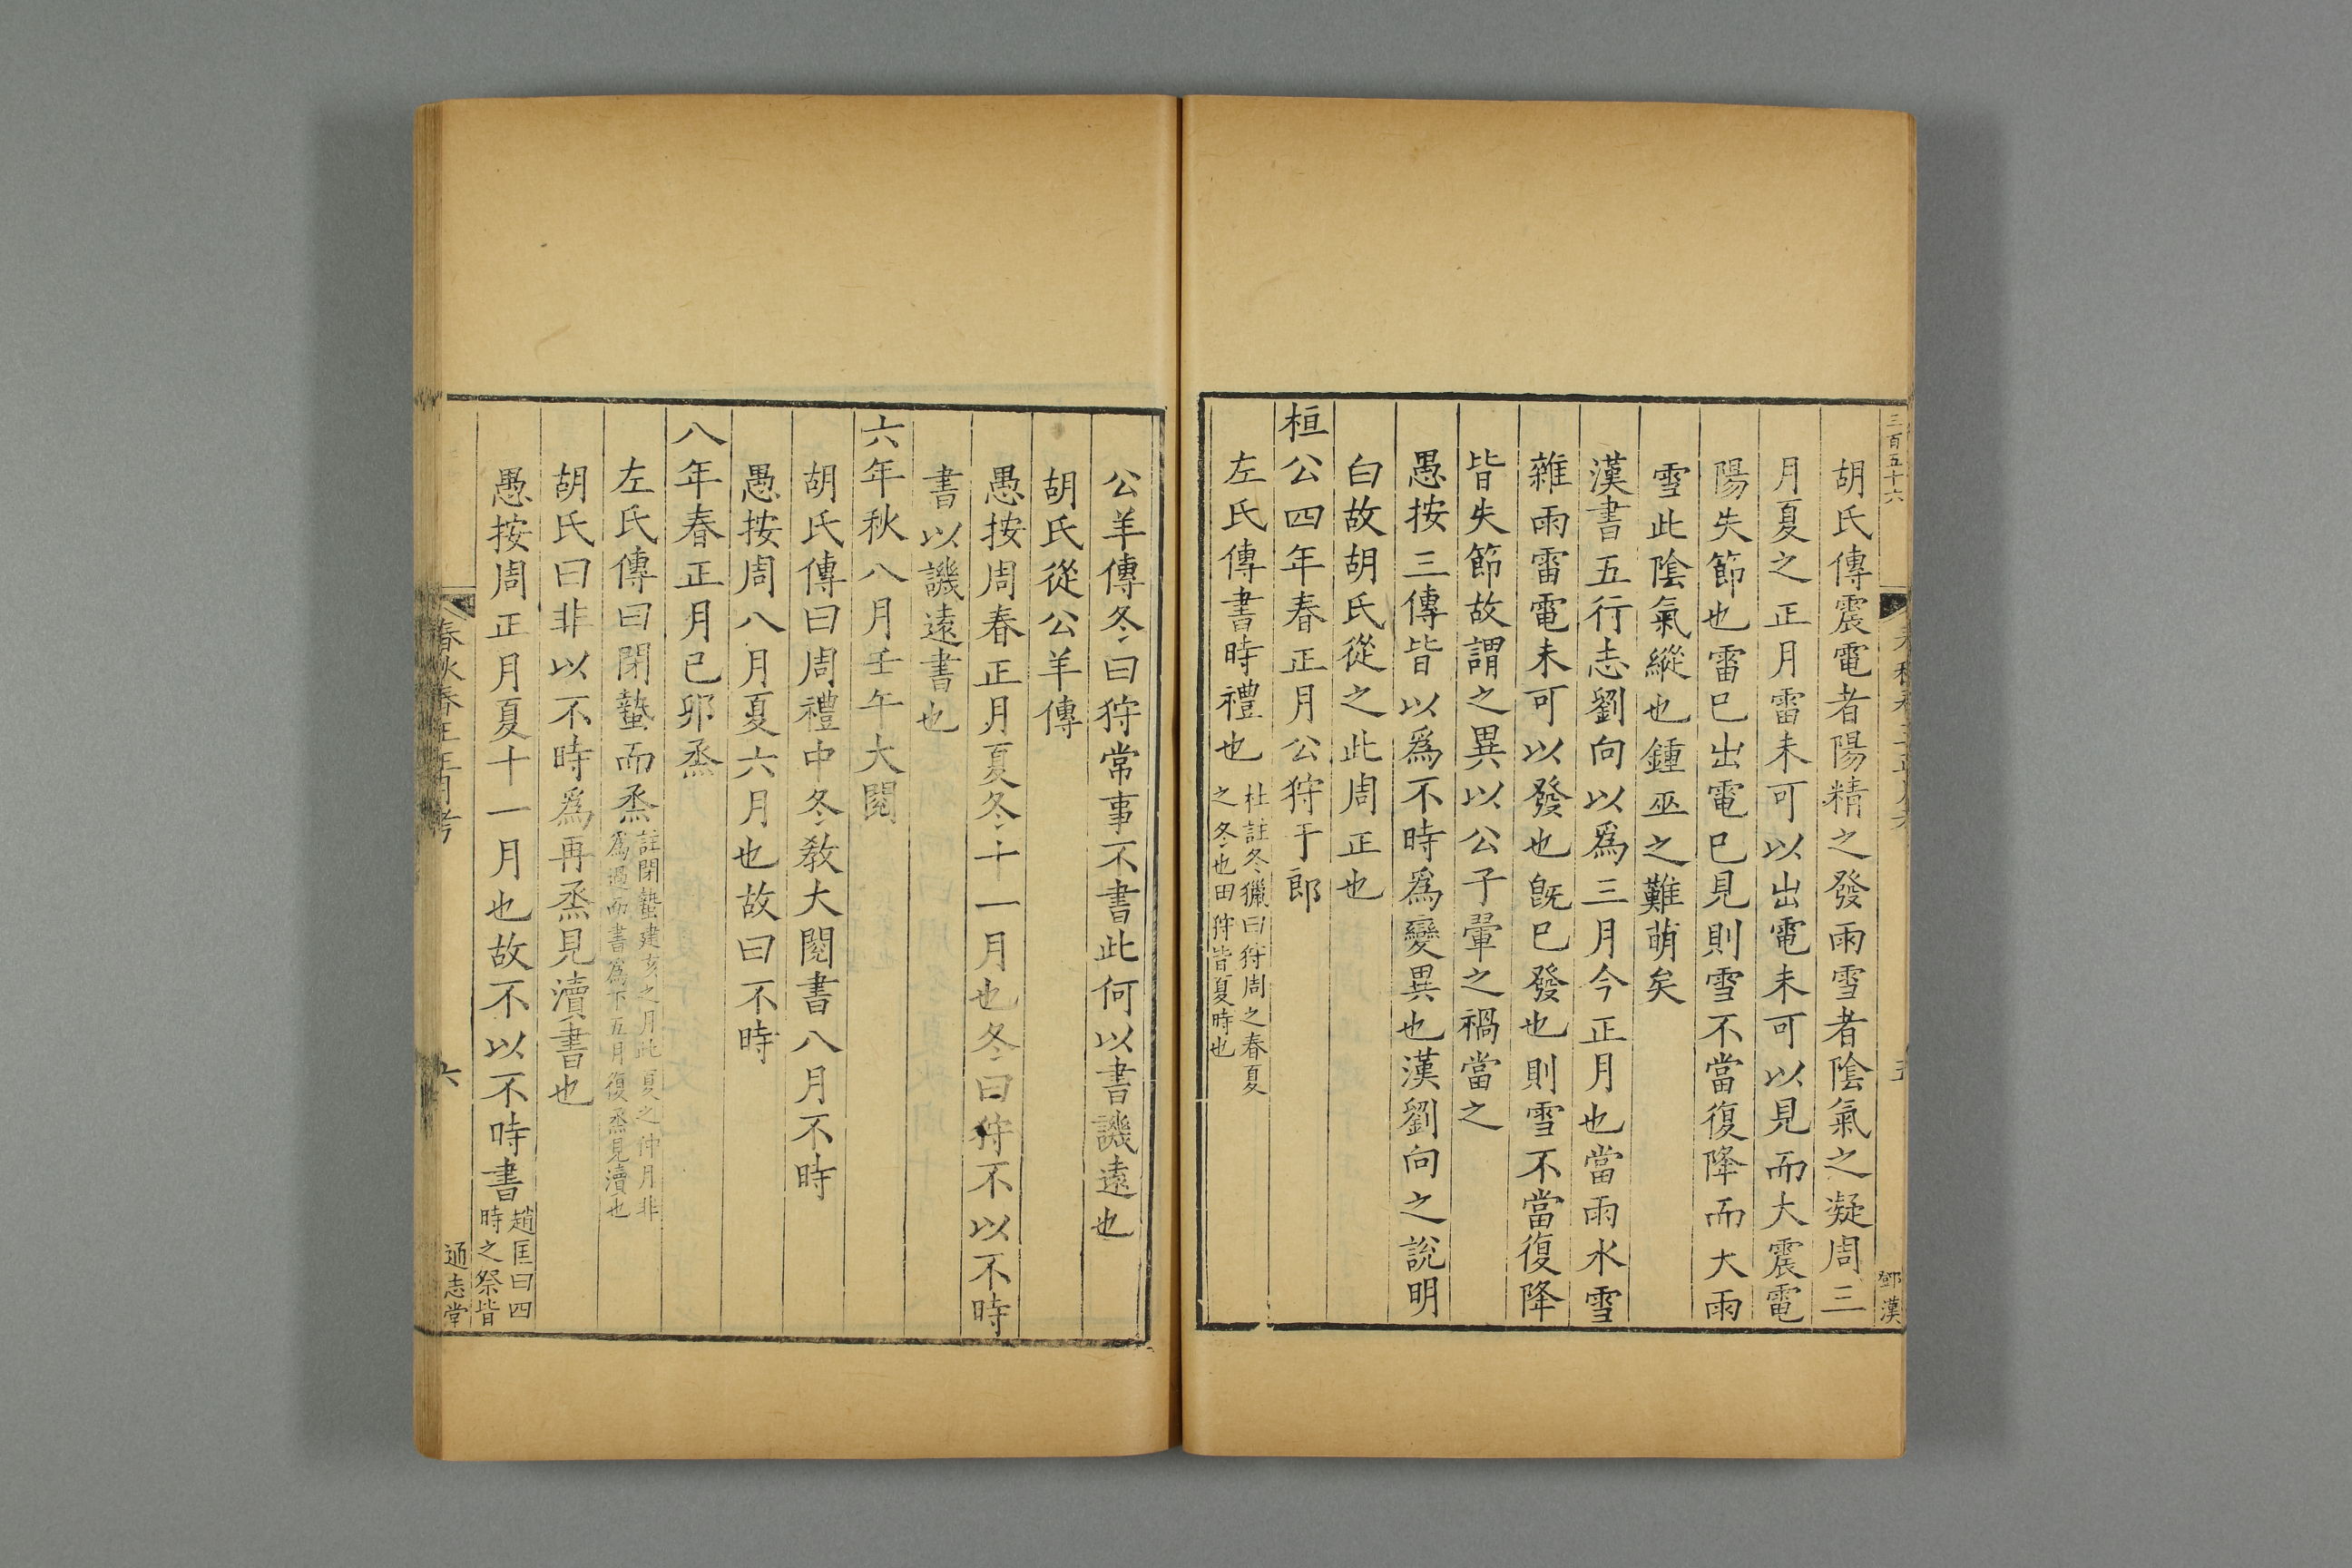 三百五十六
五
鄧漢
胡氏傳震電者陽精之發雨雪者陰氣之凝周三
月夏之正月雷未可以出電未可以見而大震電
陽失節也雷巳出電巳見則雪不當復降而大雨
雪此陰氣縱也鍾巫之難萌矣
漢書五行志劉向以爲三月今正月也當雨水雪
雜雨雷電未可以發也旣巳發也則雪不當復降
皆失節故謂之異以公子翬之禍當之
愚按三傳皆以爲不時爲變異也漢劉向之說明
白故胡氏從之此周正也
桓公四年春正月公狩于郎
左氏傳書時禮也
杜註冬獵曰狩周之春夏
之冬也田狩皆夏時也
公羊傳冬曰狩常事不書此何以書譏遠也
胡氏從公羊傳
愚按周春正月夏冬十一月也冬曰狩不以不時
書以譏遠書也
六年秋八月壬午大閱
胡氏傳曰周禮中冬敎大閱書八月不時
愚按周八月夏六月也故曰不時
八年春正月已卯烝
左氏傳曰閉蟄而烝
註閉蟄建亥之月此夏之仲月非
爲過而書爲下五月復烝見瀆也
胡氏曰非以不時爲再烝見瀆書也
愚按周正月夏十一月也故不以不時書
趙匡曰四
時之祭皆
春秋春王正月考
六
通志堂